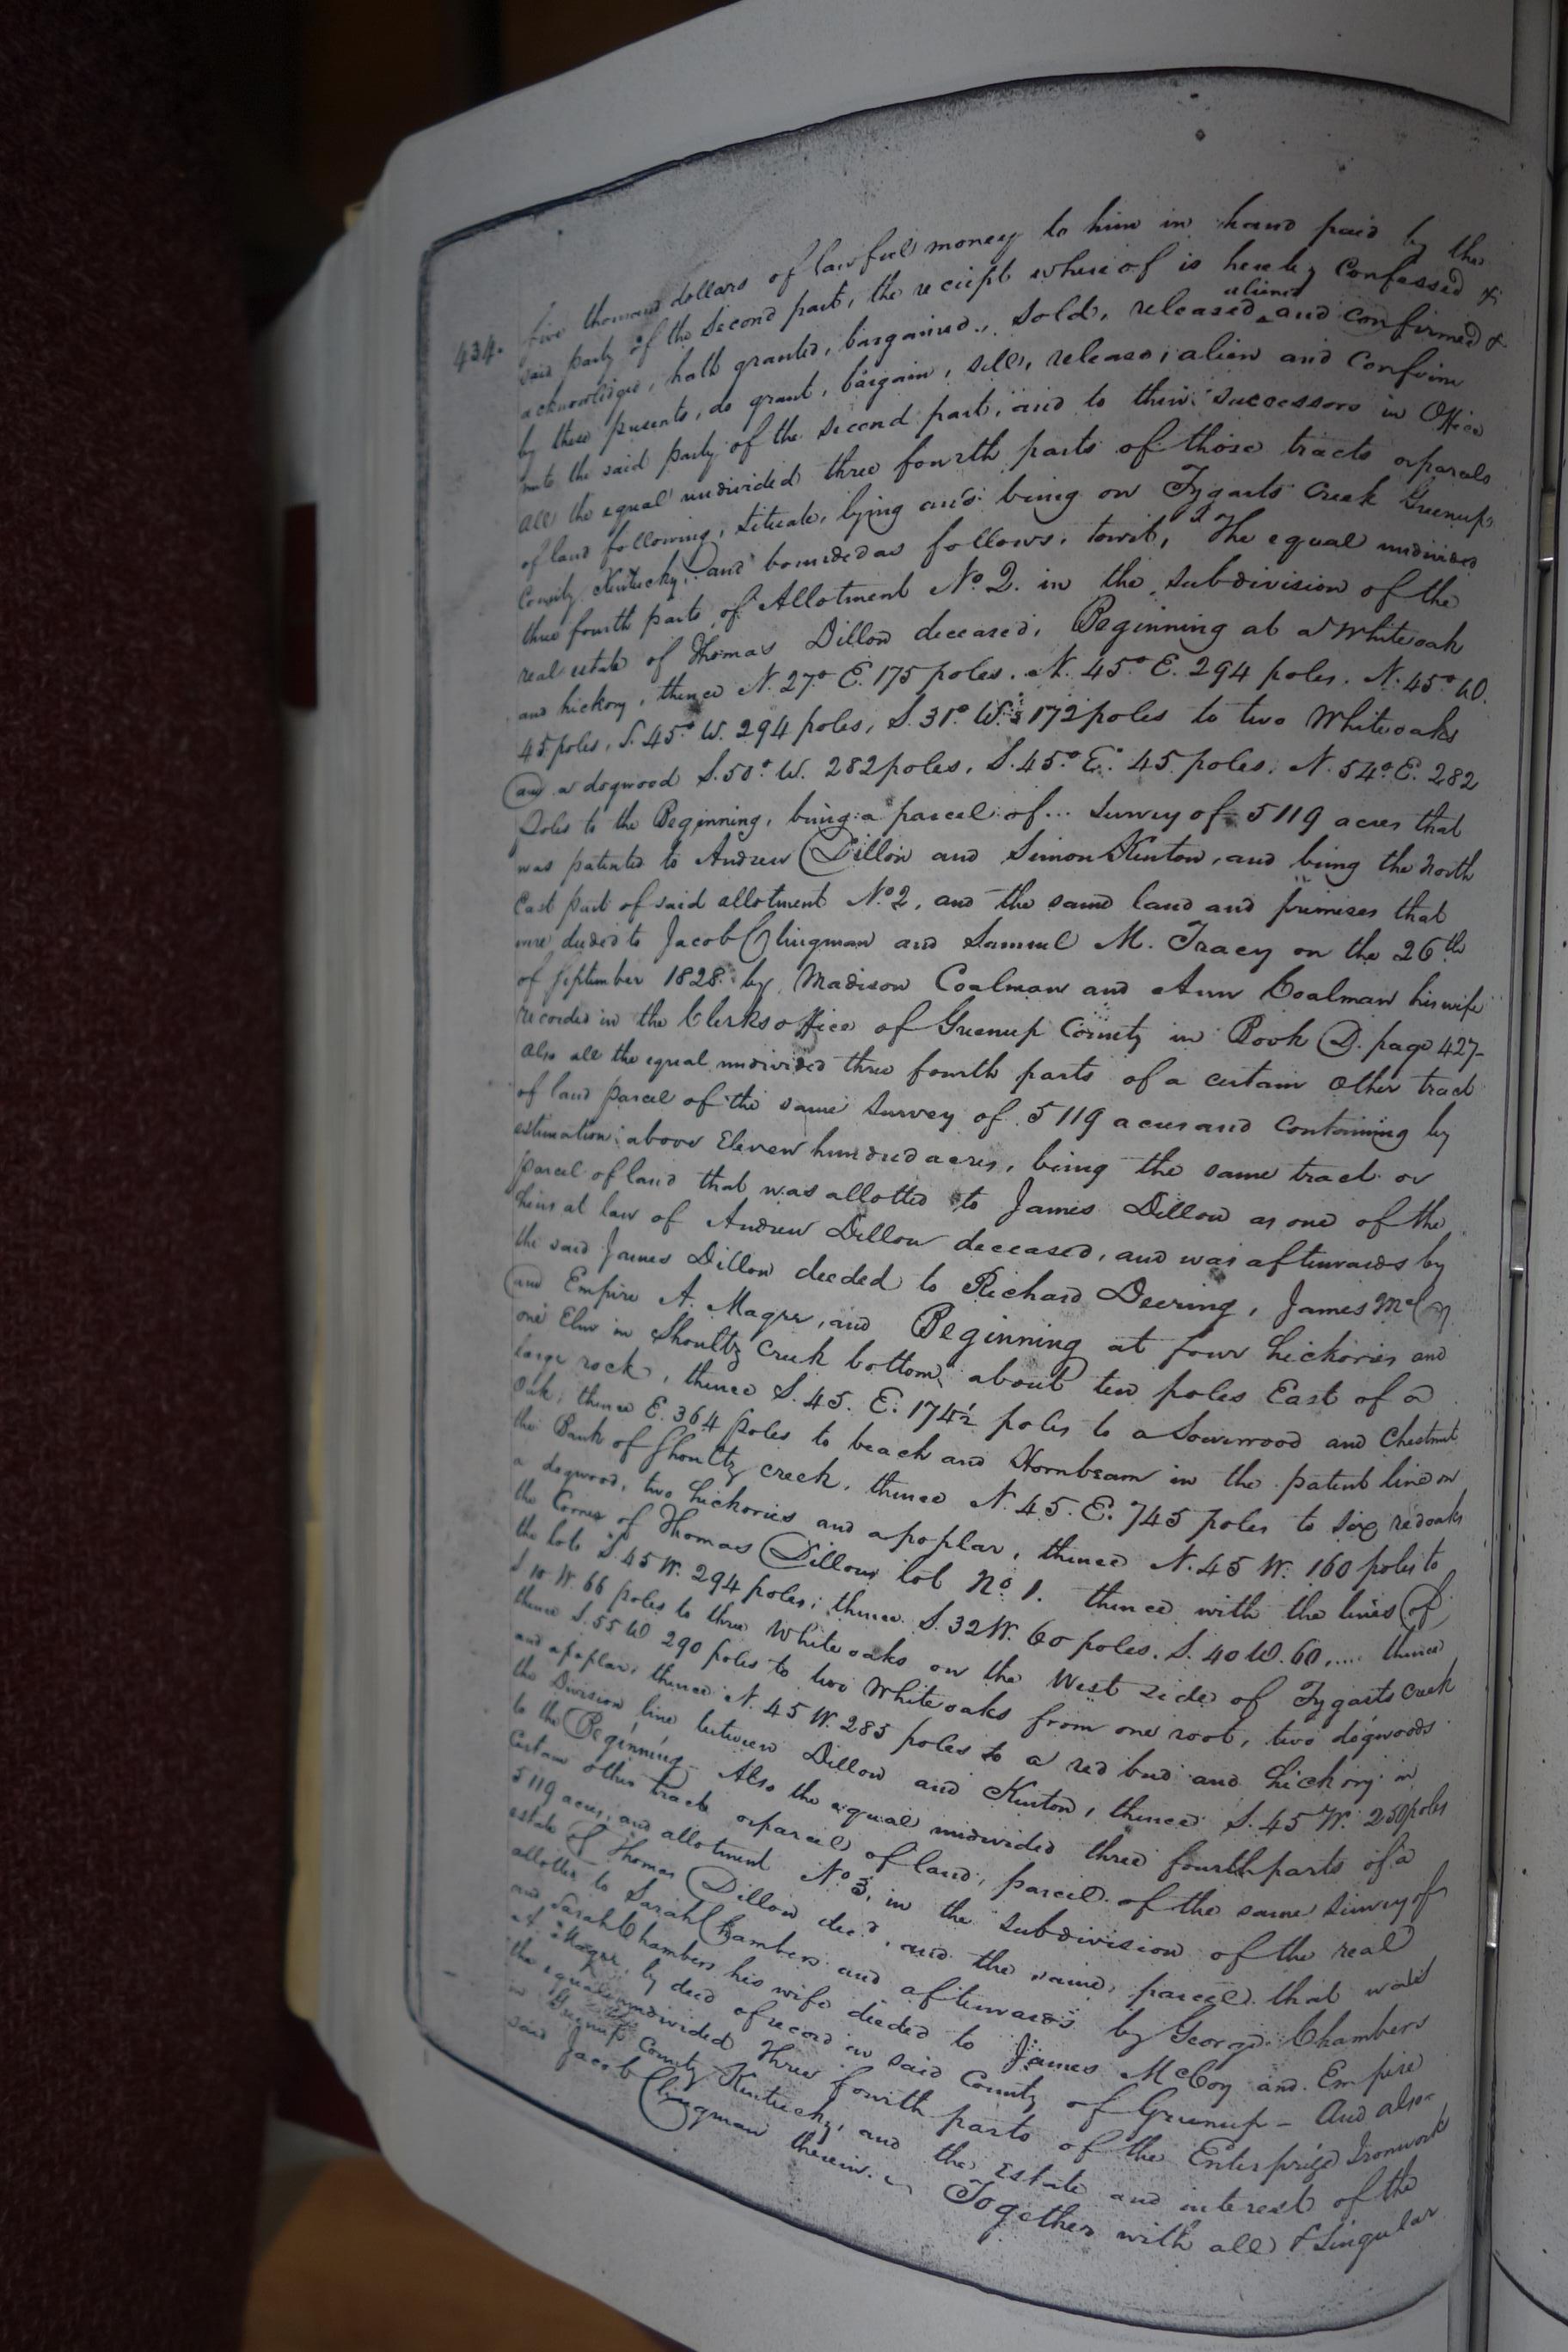 434.
five thousand dollars of lawful money to him in hand paid by the
said party of the second part, the reciept whereof is hereby Confessed &
acknowledged, hath granted, bargained, sold, released, aliened and confirmed &
by these presents, do grant, bargain, sell, release, alien and Confirm
unto the said party of the second part, and to their successors in Office
all the equal undivided three fourth parts of those tracts or parcels
of land following, situate, lying and being on Tygarts Creek Greenup
County Kentucky, and bounded as follows, towit, The equal undivided
three fourth parts of Allotment No. 2. in the subdivision of the
real estate of Thomas Dillon deceased, Beginning at a Whiteoak
and hickory, thence N. 27° E. 175 poles. N. 45° E. 294 poles. N. 45° W.
45 poles, S. 45° W. 294 poles, S. 31° W. 172 poles to two Whiteoaks
and a dogwood S. 50° W. 282 poles, S. 45° E. 45 poles. N. 54° E. 282
Poles to the Beginning, being a parcel of ... survey of 5119 acres that
was patented to Andrew Dillon and Simon Kenton, and being the North
East part of said allotment No. 2, and the same land and premises that
were deeded to Jacob Clingman and Samuel M. Tracy on the 26th
of September 1828 by Madison Coalman and Ann Coalman his wife
recorded in the Clerks office of Greenup County in Book D. page 427-
Also all the equal undivided three fourth parts of a certain other tract
of land parcel of the same survey of 5119 acres and Containing by
estimation above Eleven hundred acres, being the same tract or
parcel of land that was allotted to James Dillon as one of the
heirs at law of Andrew Dillon deceased, and was afterwards by
the said James Dillon deeded to Richard Deering, James McCoy
and Empire A. Magee, and Beginning at four hickories and
one Elm in Shoultz Creek bottom, about ten poles East of a
large rock, thence S. 45. E. 174½ poles to a Sourwood and Chestnut
Oak, thence E. 364 poles to beach and Hornbeam in the patent line on
the Bank of Shoultz creek, thence N. 45. E. 745 poles to six redoaks
a dogwood, two hickories and a poplar, thence N. 45 W. 160 poles to
the Corner of Thomas Dillons lot No. 1. thence with the lines of
the lots S. 45 W. 294 poles; thence S. 32 W. 60 poles. S. 40 W. 60, .... thence
S 10 W. 66 poles to three White oaks on the West side of Tygarts Creek
thence S. 55 W 290 poles to two Whiteoaks from one root, two dogwoods
and a poplar, thence N. 45 W. 285 poles to a red bud and hickory in
the Division line between Dillon and Kenton, thence S. 45 W. 250 poles
to the Beginning - Also the equal undivided three fourth parts of a
Certain other tract or parcel of land, parcel of the same survey of
5119 acres, and allotment No. 3, in the subdivision of the real
estate of Thomas Dillon decd, and the same parcel that was
allotted to Sarah Chambers and afterwards by George Chambers
and Sarah Chambers his wife deeded to James McCoy and Empire
A. Magee, by deed of record in said County of Greenup - And also
the equal undivided three fourth parts of the Enterprize Ironwork
in Greenup County Kentucky, and the Estate and interest of the
said Jacob Clingman therein. Together with all & Singular